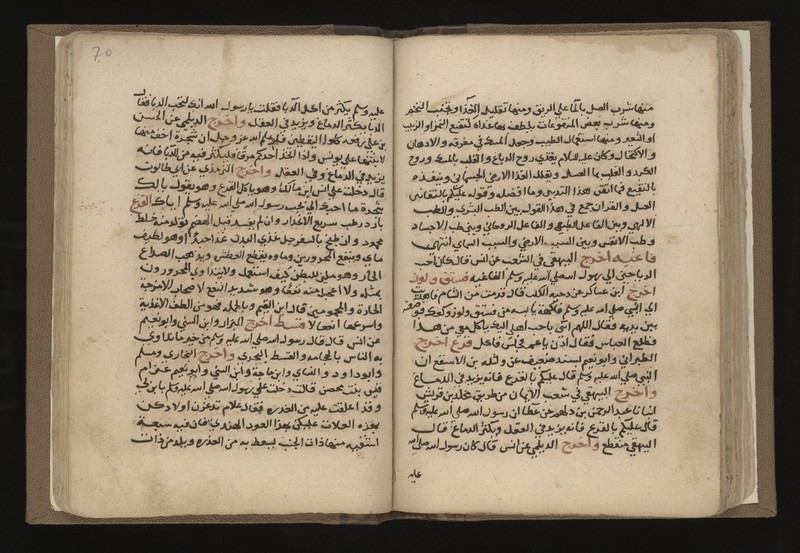 منها شرب العسل بالماء على الريق ومنها تقليل الغذا وتجنب التخم
ومنها شرب بعض المنقوعات يلطف بها غذاه كنقيع التمر او الزبيب
او الشعير ومنها استعمال الطيب وجعل المسك في مفرقه والادهان
والاكتحال وكان عليه السلام يغذي روح الدماغ والقلب بالمسك وروح
الكبد والقلب بما العسل ويقلل الغذا الارضي الجسماني وينفذه
بالنقيع فما اتقن هذا التدبير وما افضله وقوله عليكم بالشفائين
العسل والقران جمع في هذا القول بين الطب البشري والطب
الالهي وبين الفاعل الطبيعي والفاعل الروحاني وبين طب الاجساد
وطب الانفس وبين السبب الارضي والسبب السماي انتهى
فاغية اخرج البيهقي في الشعب عن انس قال كان احب
الرياحين الي رسول الله صلى الله عليه وسلم الفاغية فستق ولوز
اخرج ابن عساكر عن دحية الكلبي قال قدمت من الشام فاهديت
الى النبي صلى الله عليه وسلم فاكهة يابسة من فستق ولوز وكعك فوضعته
بين يديه فقال اللهم ائتني باحب اهلي اليك ياكل معي من هذا
فطلع العباس فقال ادن ياعم فجلس فاكل قرع اخرج
الطبراني وابو نعيم بسند ضعيف عن واثلة بن الاسقع ان
النبي صلى الله عليه وسلم قال عليكم بالقرع فانه يزيد في الدماغ
واخرج البيهقي في شعب الايمان من طريق مخلد بن قريش
انبانا عبد الرحمن بن دلهم عن عطا ان رسول الله صلى الله عليه وسلم
قال عليكم بالقرع فانه يزيد في العقل ويكبر الدماغ قال
البيهقي منقطع واخرج الديلمي عن انس قال كان رسول الله صلى الله
عليه
70
عليه وسلم يكثر من اكل الدبا فقلت يا رسول الله انك لتحب الدبا فقال
الدبا يكثر الدماغ ويزيد في العقل واخرج الديلمي عن الحسن
بن علي رفعه كلوا اليقطين فلو علم الله عز وجل ان شجرة اخف منها
لانبتها على يونس واذا اتخذ احدكم مرقا فليكثر فيه من الدبا فانه
يزيد في الدماغ وفي العقل واخرج الترمذي عن ابي طالوت
قال دخلت على انس ابن مالك وهو ياكل القرع وهو يقول يا لك
شجرة ما احبك الي لحب رسول الله صلى الله عليه وسلم اياك القرع
بارد رطب سريع الانحدار وان لم يفسد قبل الهضم تولد منه خلط
محمود وان طبخ بالسفرجل غذي البدن غذا جيدا وهو لطيف
ماي وينفع المحرورين وماوه يقطع العطش ويذهب الصداع
الحار وهو ملين للبطن كيف استعمل ولا يتداوى المحرورون
بمثله ولا اعجل منه نفعا وهو شديد النفع لاصحاب الامزجة
الحارة والمحمومين قال ابن القيم وبالجملة فهو من الطف الاغذية
واسرعها انفعالا قسط اخرج البزار وابن السني وابو نعيم
عن انس قال قال رسول الله صلى الله عليه وسلم من خير ما تداوى
به الناس بالحجامة والقسط البحري واخرج البخاري ومسلم
وابو داود والنساي وابن ماجة وابن السني وابو نعيم عن ام
قيس بنت محصن قالت دخلت على رسول الله صلى الله عليه وسلم بابن لي
وقد اعلقت عليه من العذرة فقال علام تدغرن اولادكن
بهذه العلاق عليكن بهذا العود الهندي فان فيه سبعة
اشفية منها ذات الجنب يسعط به من العذرة ويلد من ذات